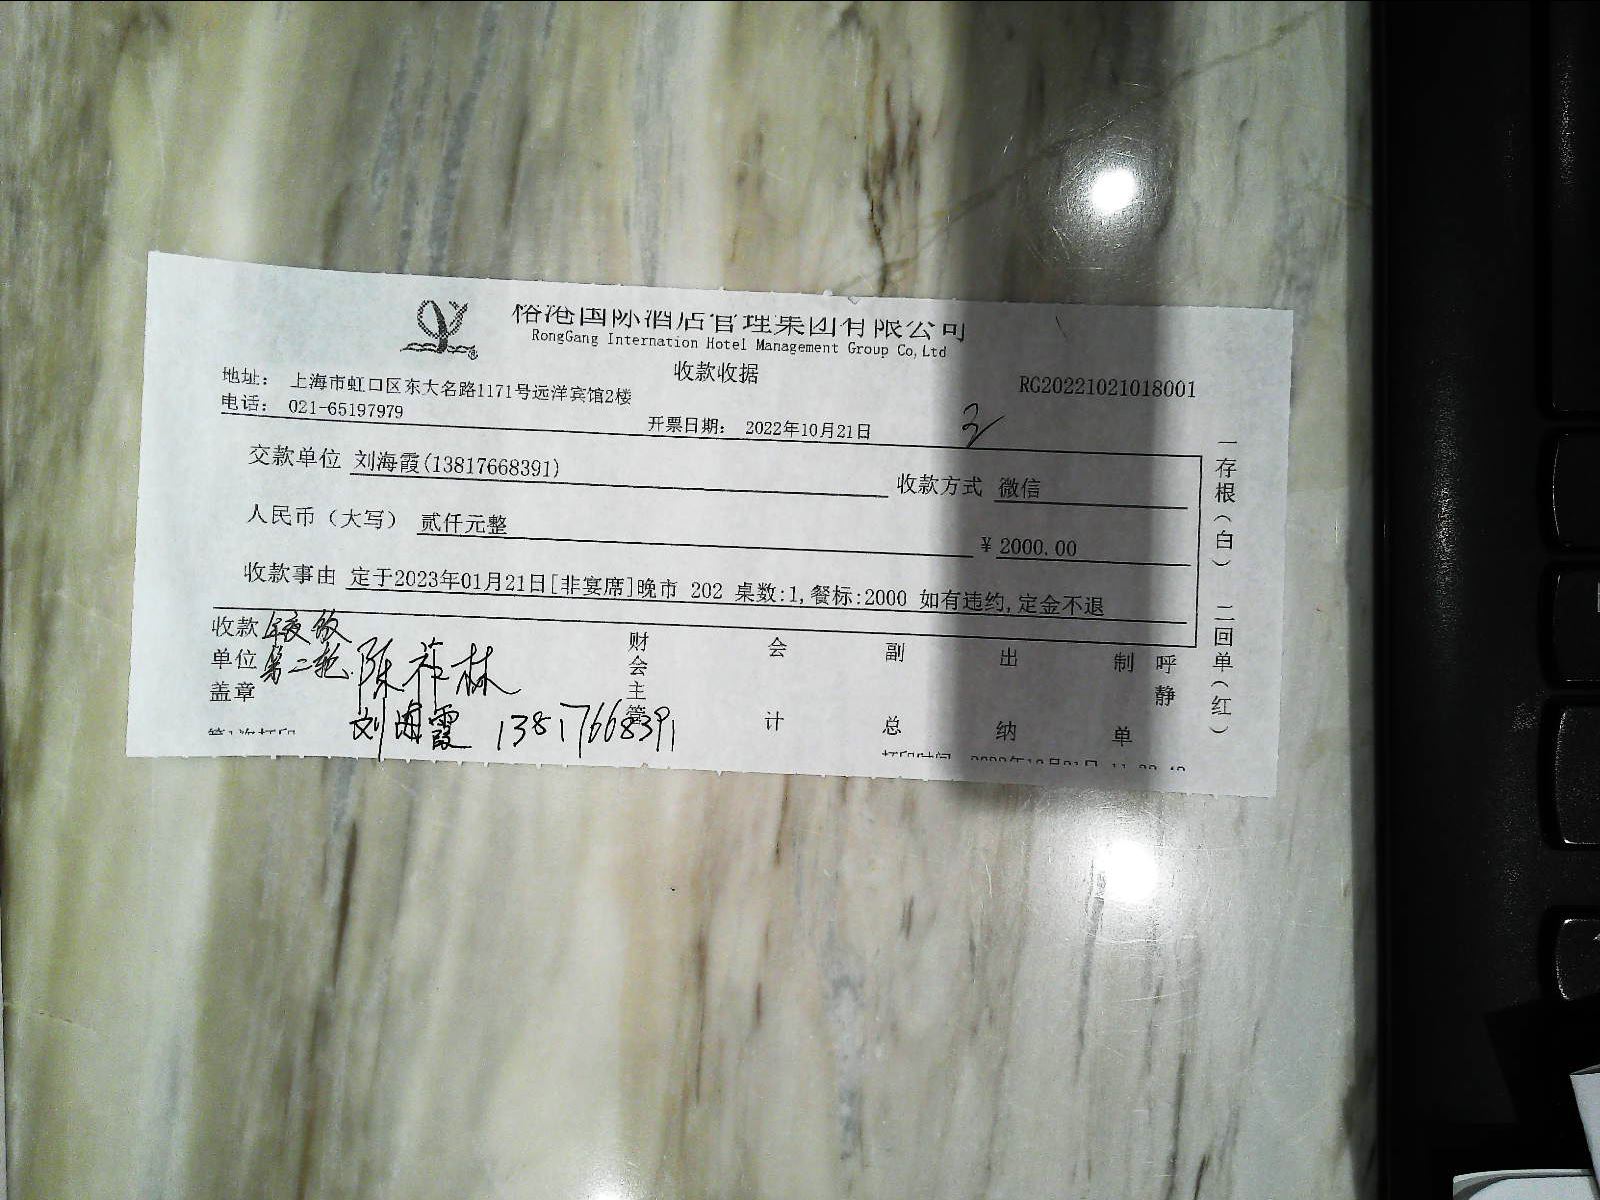 榕港国际酒店管理集团有限公司
RongGang Internation Hotel Management Group Co,Ltd
收款收据
RG20221021018001
地址： 上海市虹口区东大名路1171号远洋宾馆2楼
电话： 021-65197979
开票日期： 2022年10月21日
交款单位 刘海霞(13817668391)
收款方式 微信
人民币（大写） 贰仟元整
￥2000.00
收款事由 定于2023年01月21日[非宴席]晚市 202 桌数:1,餐标:2000 如有违约,定金不退
一存根（白） 二回单（红）
收款单位盖章
年夜饭
第二轮
陈 林
刘海霞 13817668391
财会主管
会计
副总
出纳
制单
呼静
第1次打印
打印时间